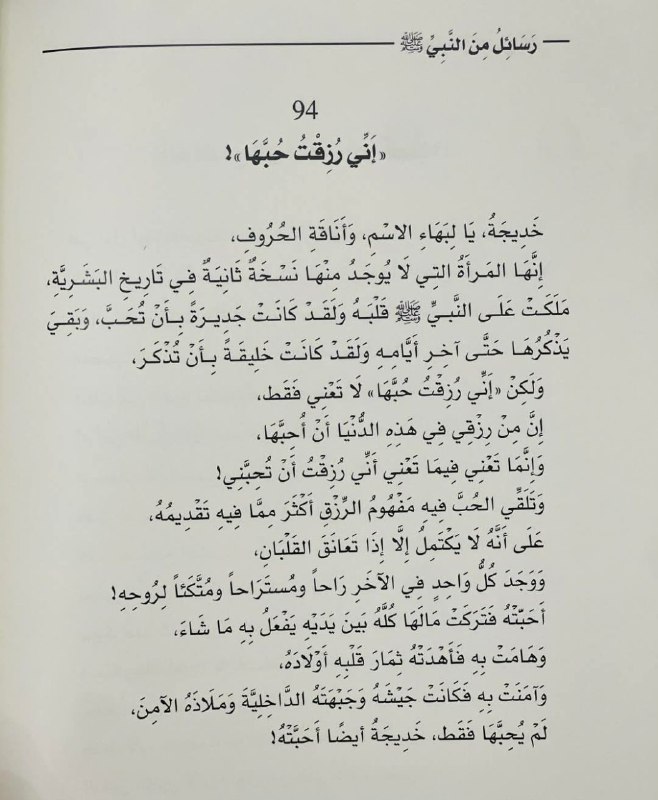 رَسَائِلُ مِنَ النَّبِيِّ ﷺ
94
«إنِّي رُزِقْتُ حُبَّهَا»!
خَدِيجَةُ، يَا لِبَهَاءِ الاسْمِ، وَأَنَاقَةِ الحُرُوفِ،
إِنَّهَا المَرأَةُ التِي لَا يُوجَدُ مِنْهَا نَسْخَةٌ ثَانِيَةٌ فِي تَارِيخِ البَشَرِيَّةِ،
مَلَكَتْ عَلَى النَّبِيِّ ﷺ قَلْبَهُ وَلَقَدْ كَانَتْ جَدِيرَةً بِأَنْ تُحَبَّ، وَبَقِيَ
يَذْكُرُهَا حَتَّى آخِرِ أَيَّامِهِ وَلَقَدْ كَانَتْ خَلِيقَةً بِأَنْ تُذْكَرَ،
وَلَكِنْ «إنِّي رُزِقْتُ حُبَّهَا» لَا تَعْنِي فَقَط،
إِنَّ مِنْ رِزْقِي فِي هَذِهِ الدُّنْيَا أَنْ أُحِبَّهَا،
وَإِنَّمَا تَعْنِي فِيمَا تَعْنِي أَنِّي رُزِقْتُ أَنْ تُحِبَّنِي!
وَتَلَقِّي الحُبَّ فِيهِ مَفْهُومُ الرِّزْقِ أَكْثَرَ مِمَّا فِيهِ تَقْدِيمُهُ،
عَلَى أَنَّهُ لَا يَكْتَمِلُ إِلَّا إِذَا تَعَانَقَ القَلْبَانِ،
وَوَجَدَ كُلُّ وَاحِدٍ فِي الآخَرِ رَاحاً ومُستَرَاحاً ومُتَّكَئاً لِرُوحِهِ!
أَحَبَّتْهُ فَتَرَكَتْ مَالَهَا كُلَّهُ بَينَ يَدَيْهِ يَفْعَلُ بِهِ مَا شَاءَ،
وَهَامَتْ بِهِ فَأَهْدَتْهُ ثِمَارَ قَلْبِهِ أَوْلَادَهُ،
وَآمَنَتْ بِهِ فَكَانَتْ جَيْشَهُ وَجَبْهَتَهُ الدَّاخِلِيَّةَ وَمَلَاذَهُ الآمِنَ،
لَمْ يُحِبَّهَا فَقَط، خَدِيجَةُ أيضًا أَحَبَّتْهُ!